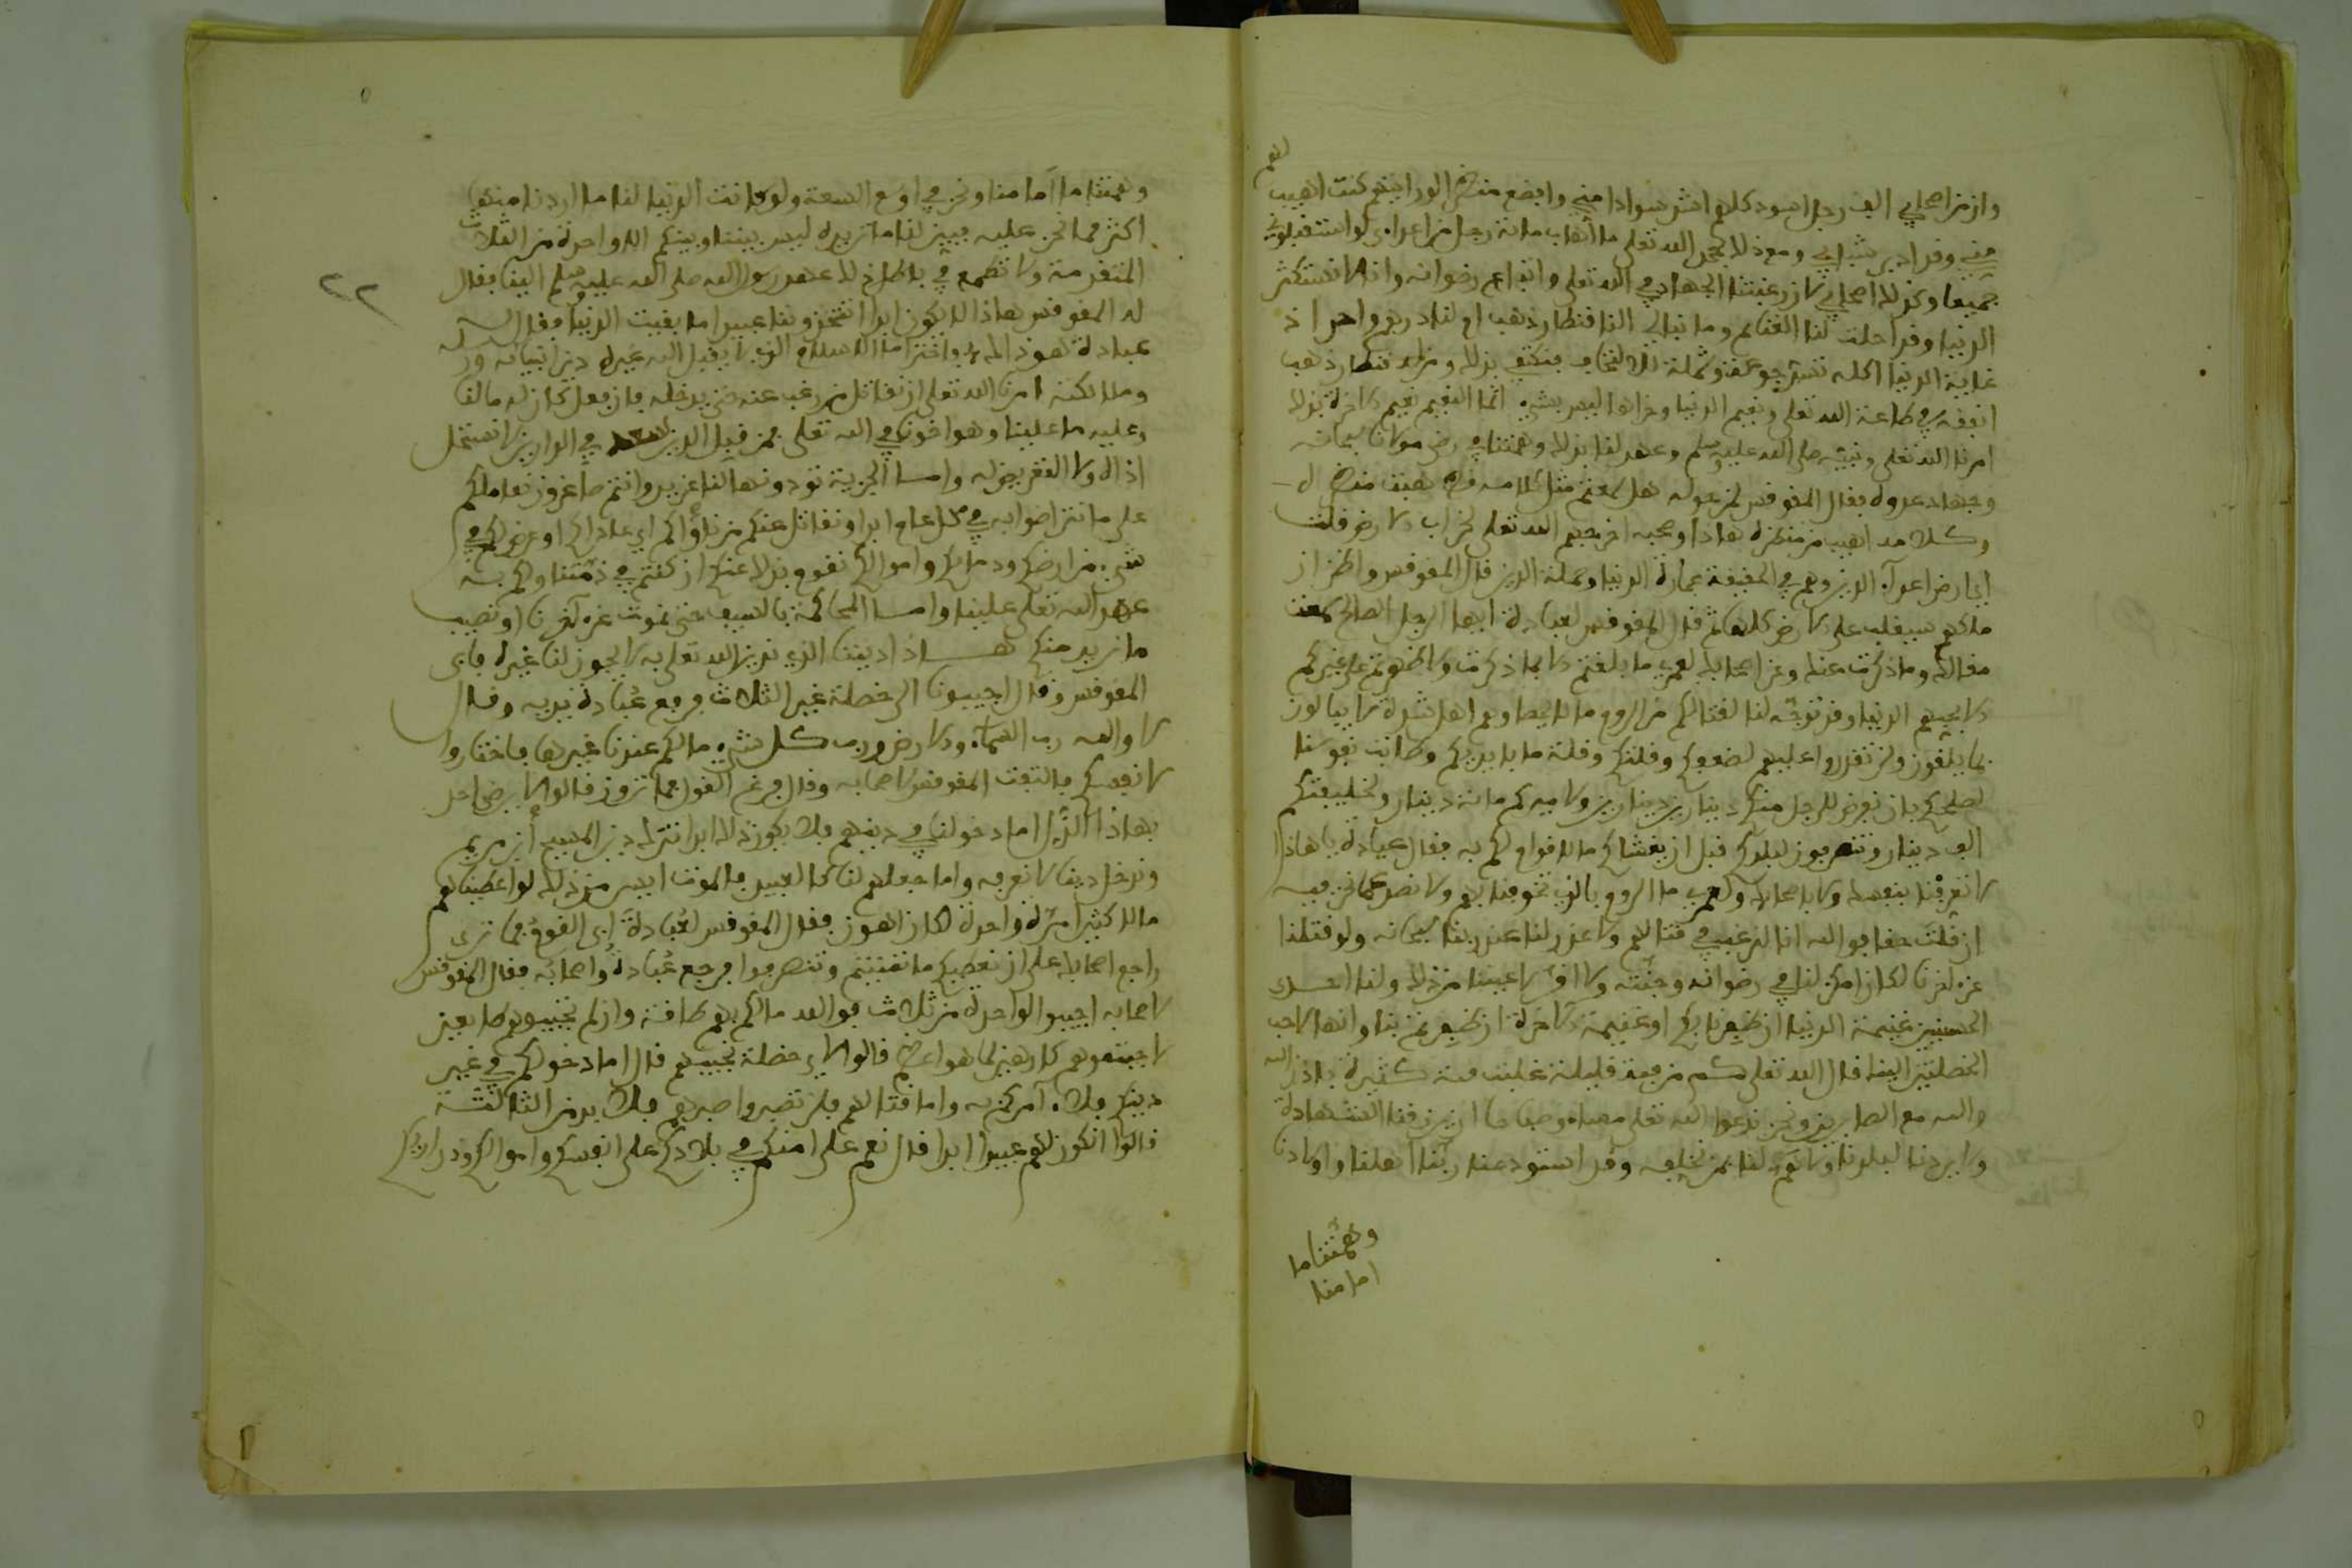 لهم
وان من اصحابي الف رجل اسود كلهم اشد سوادا مني وافضع منظرا لو رايتهم كنت اهيب
مني وقد ادبر شبابي ومع ذلك بحمد الله تعلى ما أهاب مائة رجل من اعداءي لو استقبلوني
جميعا وكذلك اصحابي لان رغبتنا الجهاد في الله تعلى واتباع رضوانه وانا لا نستكثر
الدنيا وقد احلت لنا الغنائم وما نبالي النا قنطار ذهب ام لنا درهم واحد اذ
غاية الدنيا اكلة تسد جوعته وشملة يلتحاف فيكتفي بذلك ومن له قنطار ذهب
انفقه في طاعة الله تعلى ونعيم الدنيا ورخاؤها ليس بشيء انما النعيم نعيم الاخرة بذلك
امرنا الله تعلى ونبيه صلى الله عليه وسلم وعهد لنا بذلك وهمتنا في رضى مولانا سبحانه
وجهاد عدوه فقال المقوقس لمن حوله هل سمعتم مثل كلامه فقد هبت منظره
وكلامه اهيب من منظره هاذا وصحبه اخرجهم الله تعلى لخراب الارض قلت
اي ارض اعداء الدين وهم في الحقيقة عمارة الدنيا وحملة الدين قال المقوقس واظن ان
ملكهم سيغلب على الارض كلها ثم قال المقوقس لعبادة ايها الرجل الصالح سمعت
مقالتك وما ذكرت عنك وعن اصحابك لعمري ما بلغتم الا بما ذكرت ولا ظهرتم على غيركم
الا بحبهم الدنيا وقد توجه لنا لقتالكم من الروم ما لا يحصا وهم اهل شدة لا يبالون
بما يلقون ولن تقدروا عليهم لضعفكم وقلتكم وقلة ما بايديكم وطابت نفوسنا
لصلحكم بان نفرض للرجل منكم دينارين دينارين ولاميركم مائة دينار ولخليفتكم
الف دينار وتنصرفون لبلدكم قبل ان يغشاكم ما لا قوام لكم به فقال عبادة يا هاذا
لا تغرنا بنفسك ولا باصحابك ولعمري ما الروم بالذي تخوفنا بهم ولا نصد عما نحن فيه
ان قلت حقا فوالله انا لنرغب في قتالهم ولاعذر لنا عند ربنا سبحانه ولو قتلنا
عن اخرنا لكان امكن لنا في رضوانه وجنته ولا اقر لاعيننا من ذلك ولنا احدى
الحسنيين غنيمة الدنيا ان ظفرنا بكم او غنيمة الاخرة ان ظفرتم بنا وانها لاحب
الخصلتين الينا قال الله تعلى كم من فئة قليلة غلبت فئة كثيرة باذن الله
والله مع الصابرين ونحن ندعوا الله تعلى مساء وصباحا ان يرزقنا الشهادة
ولا يردنا لبلدنا ولا هم لنا بمن نخلفه وقد استودعنا ربنا اهلنا واولادنا
وهمتنا ما
امامنا
٢٢
وهمتنا ما امامنا ونحن في اوسع السعة ولو كانت الدنيا لنا ما اردنا منها
اكثر مما نحن عليه فبين لنا ما تريده ليس بيننا وبينكم الا واحدة من الثلاث
المتقدمة ولا تطمع في باطل اذ لا عهد رسول الله صلى الله عليه وسلم الينا فقال
له المقوقس هاذا لا يكون ابدا تتخذوننا عبيدا ما بقيت الدنيا فقال له
عبادة هو ذاك فاختر اما الاسلام الذي لا يقبل الله غيره دين انبيائه ورسله
وملائكته امرنا الله تعلى ان نقاتل من رغب عنه حتى يدخله فان فعل كان له مالنا
وعليه ما علينا وهو اخونا في الله تعلى فمن قبل الدين سعد في الدارين لا نستحل
اذاه ولا التعرض له واما الجزية تودونها لنا عن يد وانتم صاغرون نعاملكم
على ما نتراضوا به في كل عام ابدا ونقاتل عنكم من ناواكم اي عاداكم او عرض لكم في
شيء من ارضكم ودمائكم واموالكم نقوم بذلك عنكم ان كنتم في ذمتنا ولكم به
عهد الله تعلى علينا واما المحاكمة بالسيف حتى نموت عن اخرنا او نصيب
ما نريد منكم هاذا ديننا الذي ندين الله تعلى به لا يجوز لنا غيره فابى
المقوقس وقال اجيبونا الى خصلة غير الثلاث فرفع عبادة يديه وقال
لا والله رب السماء والارض ورب كل شيء مالكم عندنا غيرها فاختاروا
لانفسكم فالتفت المقوقس لاصحابه وقال فرغ القول فما ترون قالوا لا يرضى احد
بهاذا الذل اما دخولنا في دينهم فلا يكون ذلك ابدا نترك دين المسيح ابن مريم
وندخل دينا لا نعرفه واما جعلهم لنا كالعبيد فالموت ايسر من ذلك لو اعطيناهم
مالا كثيرا مرة واحدة لكان اهون فقال المقوقس لعبادة ابى القوم فما ترى
راجع اصحابك على ان نعطيكم ما تمنيتم وتنصرفوا فرجع عبادة واصحابه فقال المقوقس
لاصحابه اجيبوا لواحدة من ثلاث فوالله ما لكم بهم طاقة وان لم تجيبوهم طايعين
لاجبتموهم كارهين لما هو اعظم قالوا لاي خصلة نجيبهم قال اما دخولكم في غير
دينكم فلا ءامركم به واما قتالهم فلن تصبروا صبرهم فلا بد من الثالثة
قالوا انكون لهم عبيدا ابدا قال نعم على امنكم في بلادكم على انفسكم واموالكم وذراريكم